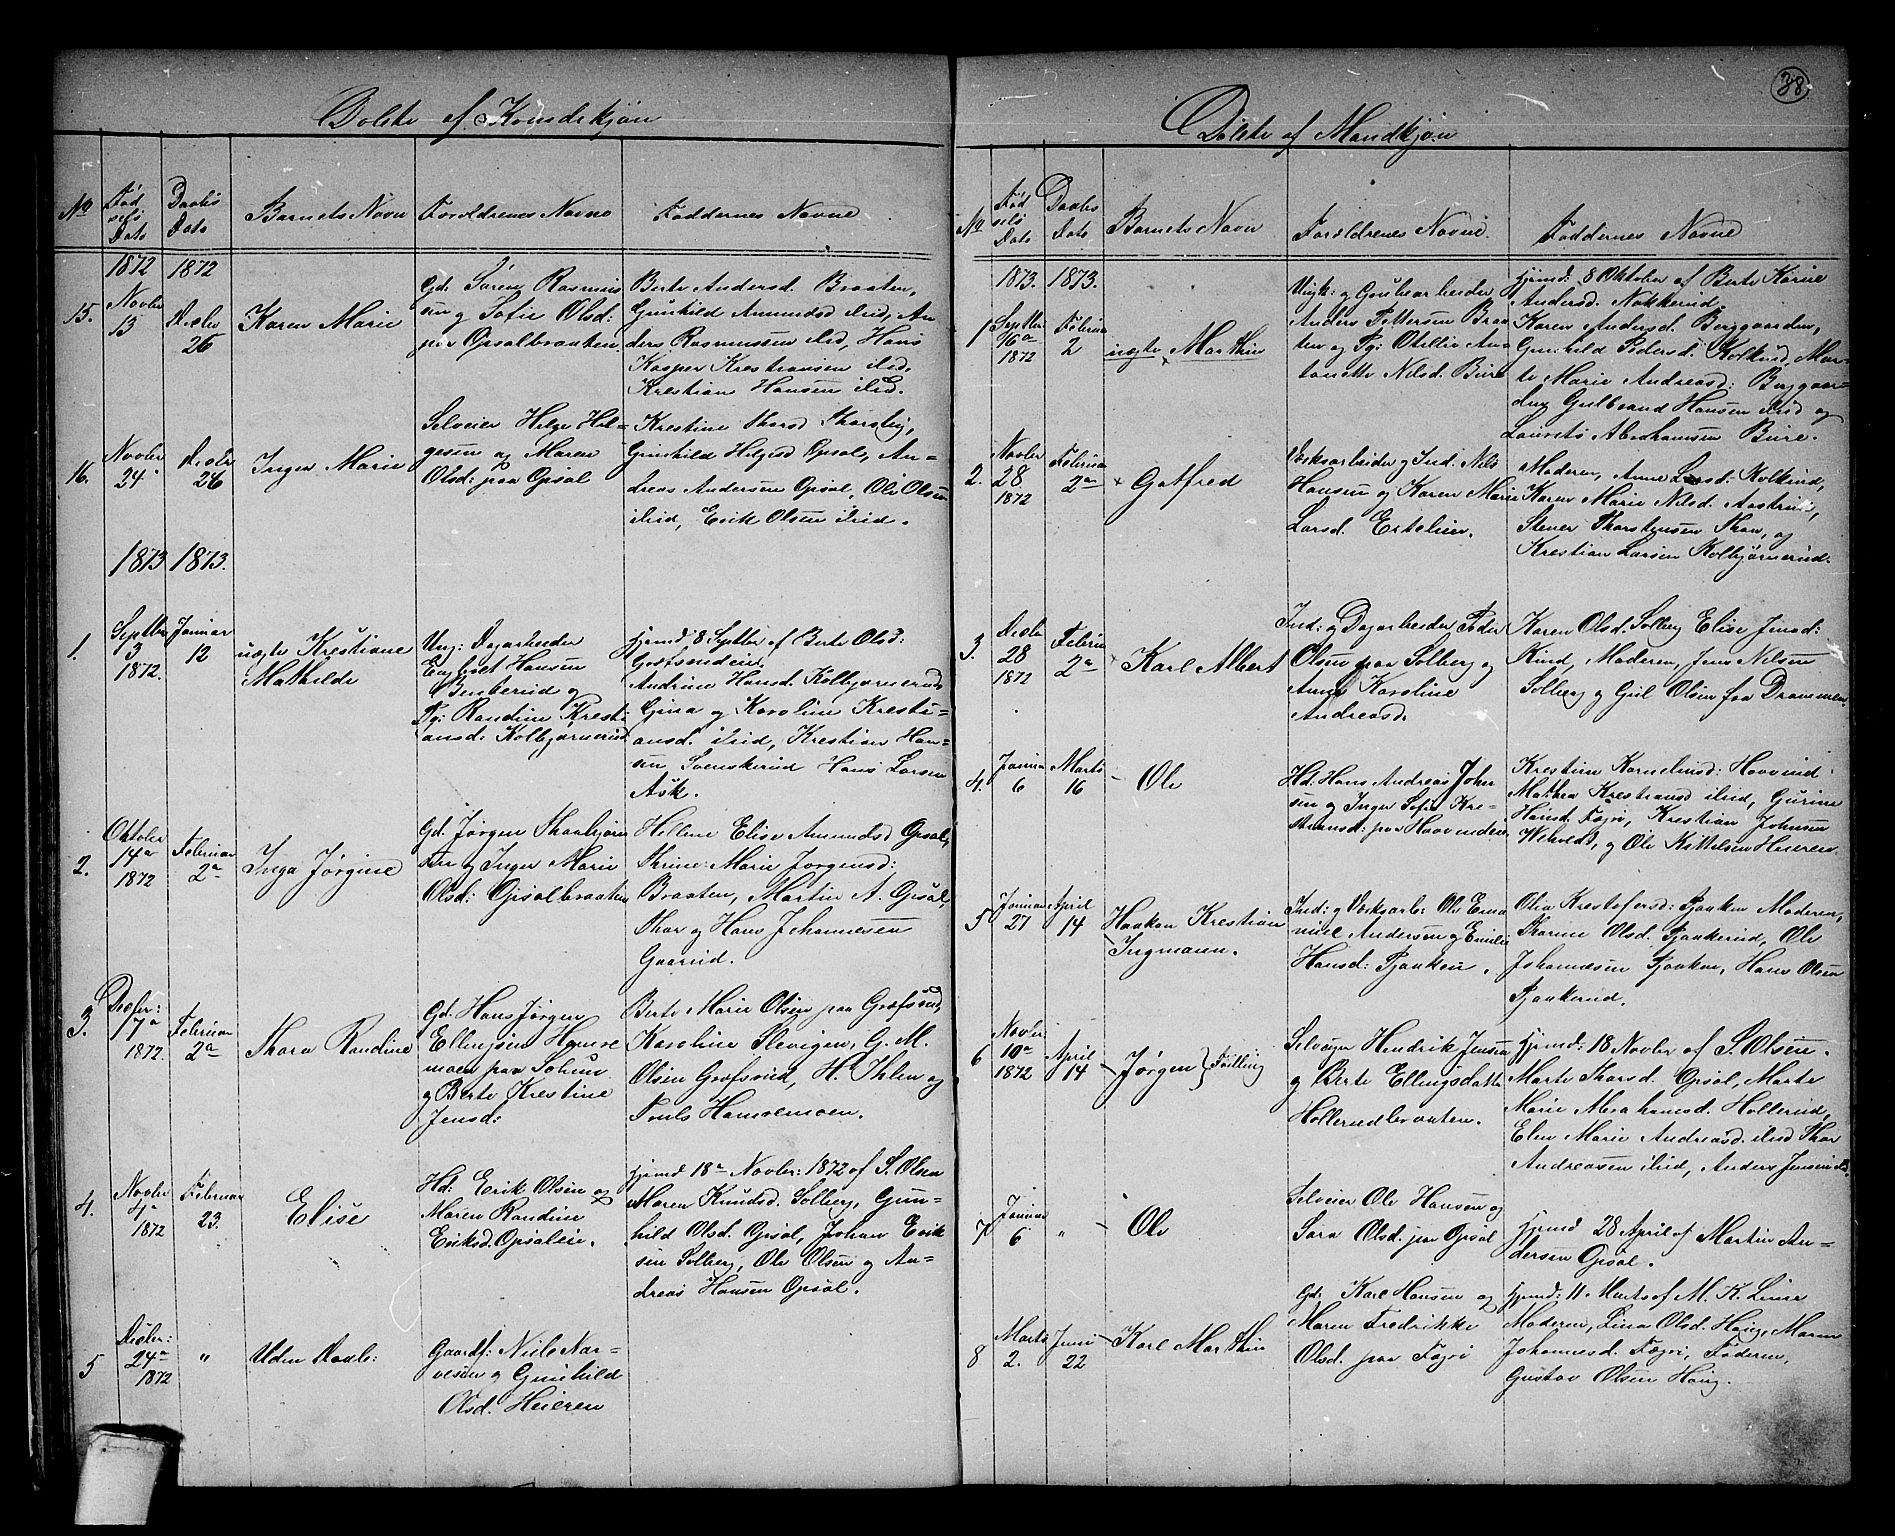 38
Døbte af Kvindekjøn
No
Fødsels Dato
Daabs Dato
Barnets Navn
Forældrenes Navne
Faddernes Navne
1872
1872
15.
Novbr 13
Decbr 26
Karen Marie
Gd. Søren Rasmus
sen og Sofie Olsd:
paa Opsalbraaten.
Berte Andersd. Braaten,
Gunhild Amundsd ibid, An
ders Rasmussen ibid, Hans
Kasper Krestiansen ibid,
Krestian Hansen ibid.
16.
Novbr 24
Decbr 26
Inger Marie
Selveier Helge Hel-
gesen og Maren
Olsd: paa Opsal
Krestine Thorsd Thorsby,
Gunhild Helgesd Opsal, An-
dreas Andersen Opsal, Ole Olsen
ibid, Erik Olsen ibid.
1873
1873.
1.
Septbr 3 1872.
Januar 12
uægte Krestiane
Mathilde
Ung: Dagarbeider
Engbret Hansen
og
Pg: Randine Kresti-
ansd: Kolbjørnerud
hjemd 8 Septbr af Berte Olsd:
Andrine Hansd. Kolbjørnerud
Gina og Karoline Kresti-
ansd. ibid, Krestian Han-
sen Svenskerud Hans Larsen
Ask.
2.
Oktober 14a 1872
Februar 2a
Inga Jørgine
Gd. Jørgen Thorbjørn
sen og Inger Marie
Olsd: Opsalbraaten
Hellene Elise Amundsd Opsal,
Thrine Marie Jørgensd:
Braaten, Martin A. Opsal,
Thor og Hans Johannesen
Gaarud.
3.
Decbr: 17a 1872.
Februar 2a
Thora Randine
Gd. Hans Jørgen
Ellingsen
moen paa
og Berte Krestine
Jensd:
Berte Marie Olsen paa Grøfsrud,
Karoline Slevigen, G. M.
Olsen Grøfsrud, H. Ihlen og
Povls Hamremoen.
4.
Novbr 4a 1872
Februar 23.
Elise
Hd: Erik Olsen og
Maren Randine
Eriksd. Opsaleie.
hjemd 18a Novbr: 1872 af S. Olsen
Maren Knudsd. Solberg, Gun-
hild Olsd. Opsal, Johan Erik
sen Solberg, Ole Olsen og An-
dreas Hansen Opsal.
5
Decbr: 24a 1872
"
Uden Daab:
Gaardf: Niels Nar-
vesen og Gunhild
Olsd. Heieren
Døbte af Mandkjøn
No
Fødsels Dato
Daabs Dato
Barnets Navn
Forældrenes Navne.
Faddernes Navne
1873.
1873.
1
Septbr 16a 1872
Februar 2
uægte Marthin
Ungk: og Grubearbeider
Anders Pettersen Braa
ten og Pg: Otellie An-
tonette Nilsd. Bure
hjemd: 8 Oktober af Berte Karine
Andersd. Nakkerud.
Karen Andersd. Berggaarden,
Gunhild Pedersd. Kolkind, Mar-
te Marie Andreasd: Berggaar-
den, Gulbrand Hansen ibid og
Lauritz Abrahamsen Bure.
2.
Novbr 28 1872
Februar 2a
Gotfred
Verksarbeider og Ind. Nils
Hansen og Karen Marie
Larsd. Ertelien.
Moderen, Anne Larsd. Kolkind,
Karen Marie Nilsd. Aastrud,
Stener Thorstensen Thon, og
Krestian Larsen Kolbjørnerud.
3.
Decbr 28 1872
Februar 2a
Karl Albert
Ind: og Dagarbeider Peder
Olsen paa Solberg og
Anne Karoline
Andreasd.
Karen Olsd. Solberg Elise Jensd:
Kind, Moderen, Jens Nilsen
Solberg og Gul Olsen fra Drammen.
4.
Januar 6
Marts 16
Ole
Hd: Hans Andreas Johan
sen og Inger Sofie Kre-
stiansd: paa Hovinden.
Krestine Kornelinsd: Hovind
Mathea Krestiansd ibid, Gurine
Hansd. Fagri, Krestian Johnsen
Veholdt, og Ole Kittelsen Heieren.
5
Januar 27
April 14
Haakon Krestian
Ingmann.
Ind: og Verksarb: Ole Ema
nuel Andersen og Emilie
Hansd: Pjaaken.
Olea Krestofersd: Pjaaken Moderen,
Karine Olsd. Pjaakerud, Ole
Johannesen Pjaaken, Hans Olsen
Pjaakerud.
6
Novbr 10a 1872
April 14
Jørgen } Tvilling
Selveier Hendrik Jensen
og Berte Ellingsdatter
Hollerudbraaten.
hjemd: 18 Novbr af S. Olsen.
Marte Thorsd. Opsal, Marte
Marie Abrahamsd. Hollerud,
Elen Marie Andreasd. ibid Thor
Andreasen ibid, Anders Jensen ib.
7
Januar 6
"
Ole
Selveier Ole Hansen og
Sara Olsd. paa Opsal
hjemd 28 April af Martin An-
dersen Opsal.
8
Marts 2.
Juni 22
Karl Marthin
Gd: Karl Hansen og
Maren Fredrikke
Olsd. paa Fagri
hjemd: 11 Marts af M. K. Linne
Moderen, Lina Olsd. Haug, Maren
Johannesd. Fagri, Faderen,
Gustav Olsen Haug.